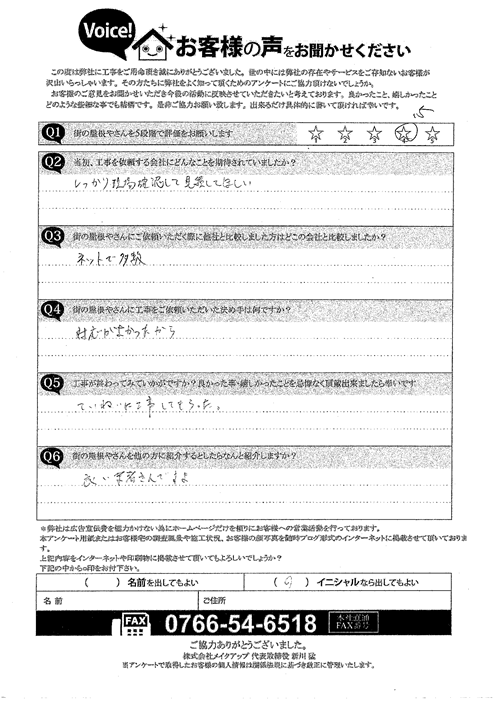 Voice!
お客様の声をお聞かせください
この度は弊社に工事をご用命頂き誠にありがとうございました。世の中には弊社の存在やサービスをご存知ないお客様が
沢山いらっしゃいます。その方たちに弊社をよく知って頂くためのアンケートにご協力頂けないでしょうか。
お客様のご意見をお聞かせいただき今後の活動に反映させていただきたいと考えております。良かったこと、嬉しかったこと
どのような些細な事でも結構です。是非ご協力お願い致します。出来るだけ具体的に書いて頂ければ幸いです。
Q1 街の屋根やさんを5段階で評価をお願いします
Q2 当初、工事を依頼する会社にどんなことを期待されていましたか?
しっかり現場確認して見積してほしい
Q3 街の屋根やさんにご依頼いただく際に他社と比較しました方はどこの会社と比較しましたか?
ネットで多数
Q4 街の屋根やさんに工事をご依頼いただいた決め手は何ですか?
対応がよかったから
Q5 工事が終わってみていかがですか?良かった事・嬉しかったことを忌憚なく頂戴出来ましたら幸いです
ていねいに工事してもらった。
Q6 街の屋根やさんを他の方に紹介するとしたらなんと紹介しますか?
良い業者さんですよ
※弊社は広告宣伝費を極力かけない為にホームページだけを頼りにお客様への営業活動を行っております。
本アンケート用紙またはお客様宅の調査風景や施工状況、お客様の顔写真を随時ブログ形式のインターネットに掲載させて頂いておりま
す。
上記内容をインターネットや印刷物に掲載させて頂いてもよろしいでしょうか?
下記の中から○印をお付下さい。
( )名前を出してもよい
( )イニシャルなら出してもよい
名前
ご住所
FAX 0766-54-6518 本社直通 FAX番号
ご協力ありがとうございました。
株式会社メイクアップ 代表取締役 新川 猛
※アンケートで取得したお客様の個人情報は関係法規に基づき厳正に管理いたします。